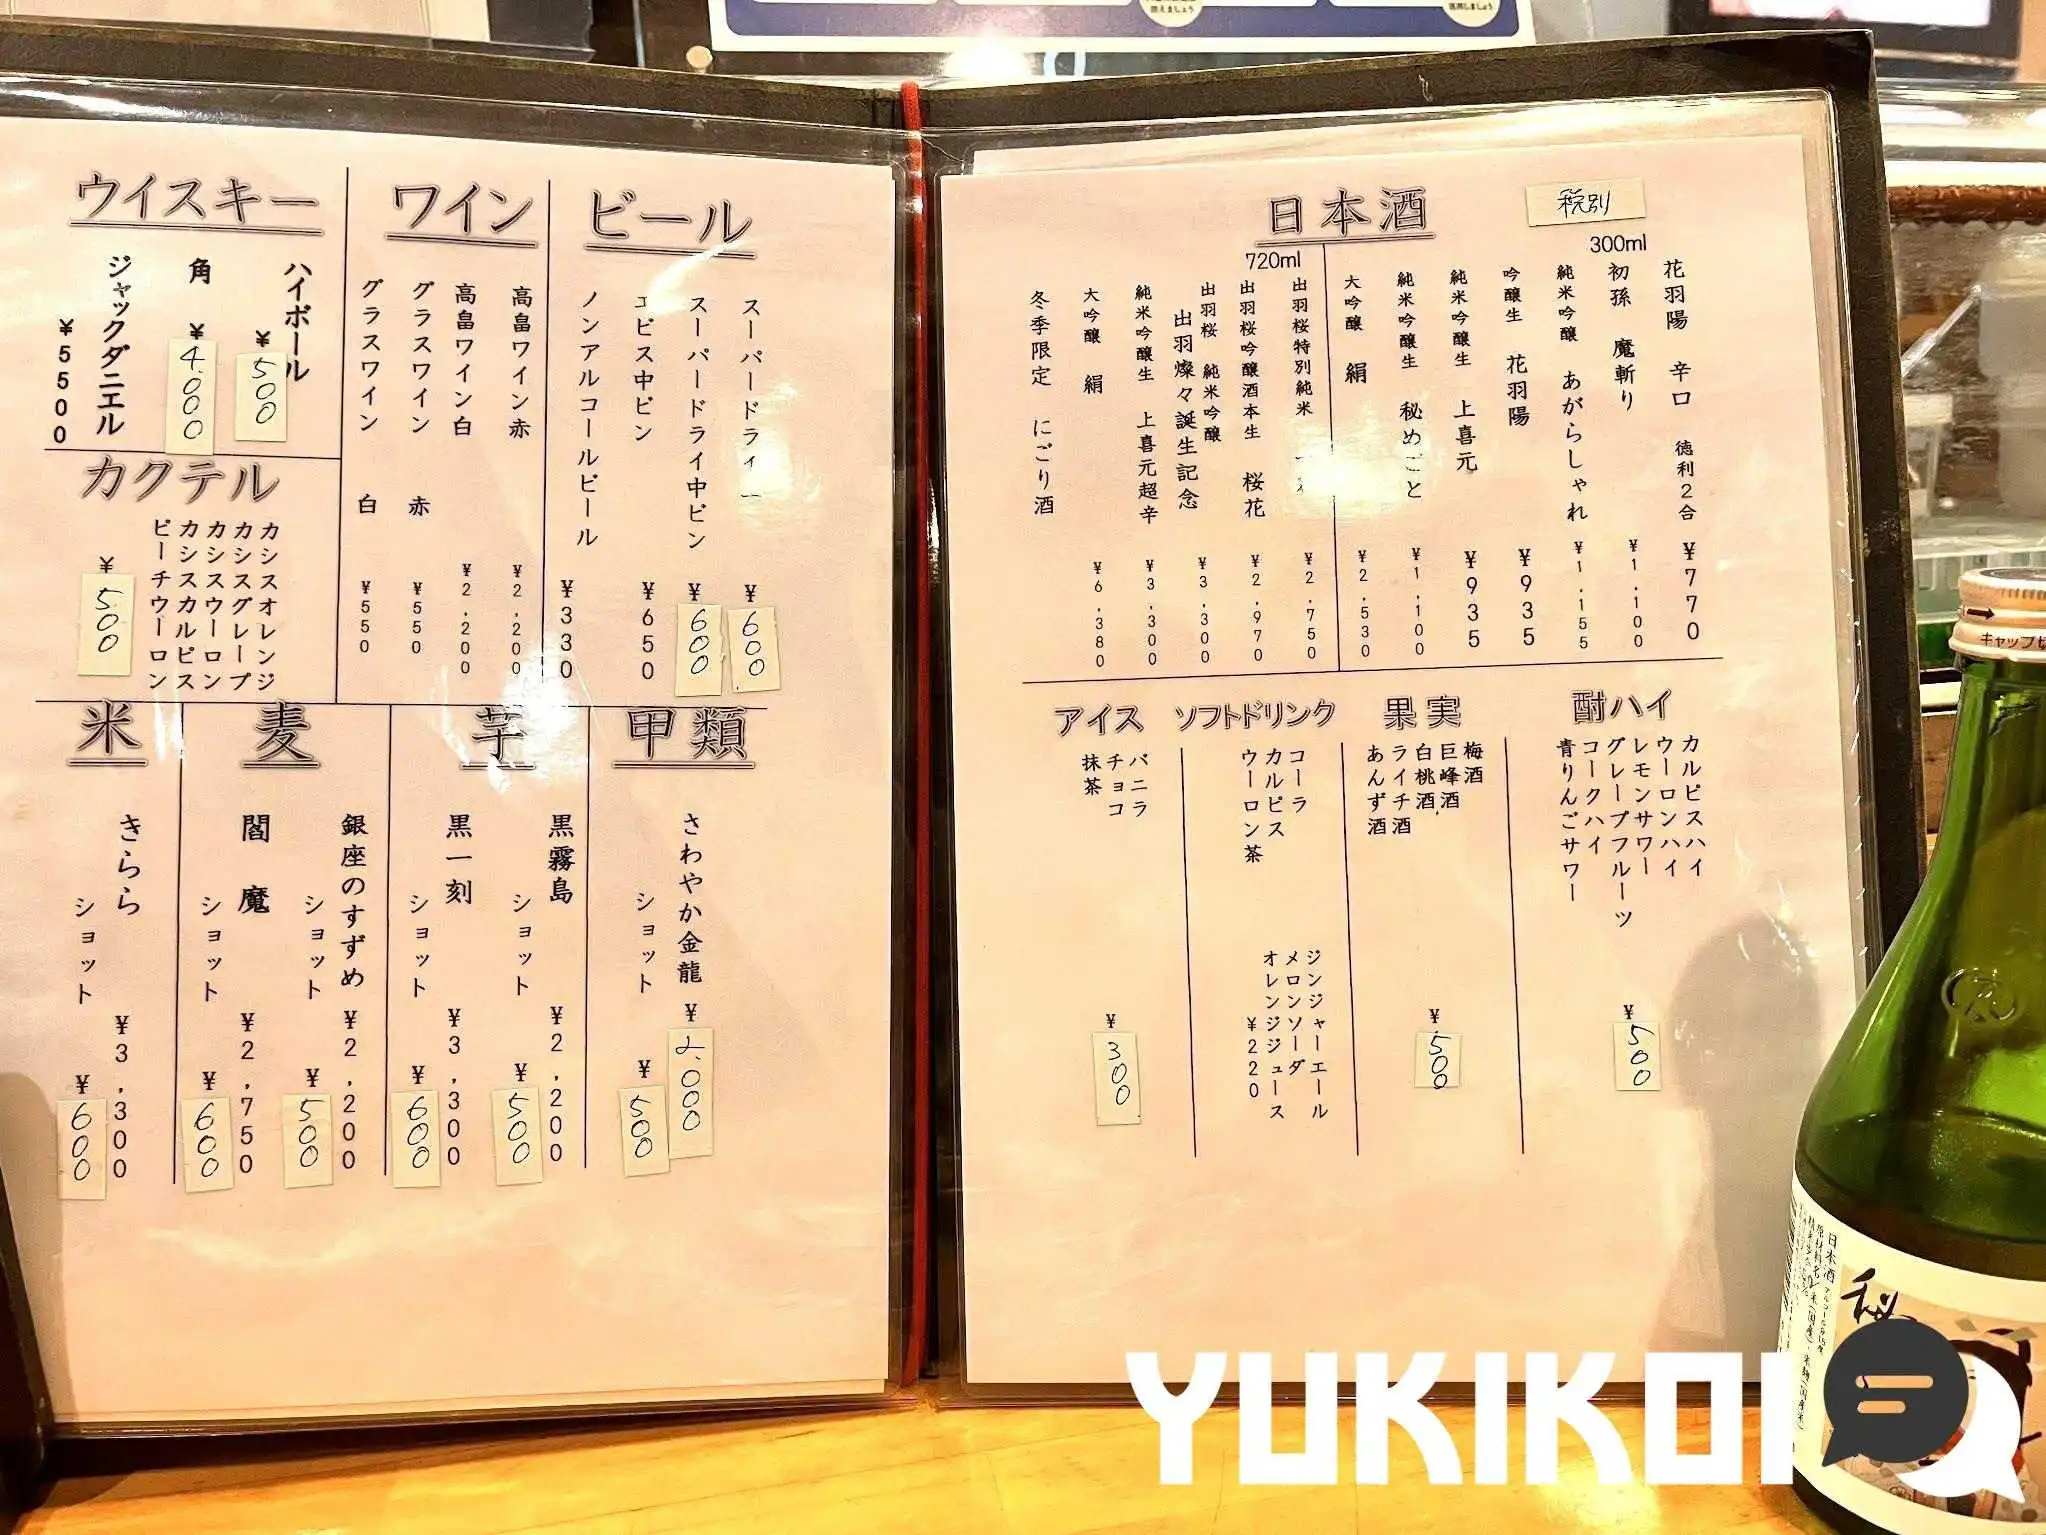 日本酒
税別
300ml
花羽陽 辛口 徳利2合 ¥770
初孫 魔斬り ¥1,100
純米吟醸 あがらしゃれ ¥1,155
吟醸生 花羽陽 ¥935
純米吟醸生 上喜元 ¥935
純米吟醸生 秘めごと ¥1,100
大吟醸 絹 ¥2,530
720ml
出羽桜特別純米 ¥2,750
出羽桜吟醸酒本生 桜花 ¥2,970
出羽桜 純米吟醸
出羽燦々誕生記念 ¥3,300
純米吟醸生 上喜元超辛 ¥3,300
大吟醸 絹 ¥6,380
冬季限定 にごり酒
酎ハイ
カルピスハイ
ウーロンハイ
レモンサワー
グレープフルーツ
コークハイ
青りんごサワー
¥500
果実
梅酒
巨峰酒
白桃酒
ライチ酒
あんず酒
¥500
ソフトドリンク
コーラ
カルピス
ウーロン茶
ジンジャーエール
メロンソーダ
オレンジジュース
¥220
アイス
バニラ
チョコ
抹茶
¥300
ビール
スーパードライ ¥600
スーパードライ中ビン ¥600
エビス中ビン ¥650
ノンアルコールビール ¥330
ワイン
高畠ワイン赤 ¥2,200
高畠ワイン白 ¥2,200
グラスワイン 赤 ¥550
グラスワイン 白 ¥550
ウイスキー
ハイボール ¥500
角 ¥4,000
ジャックダニエル ¥5500
カクテル
カシスオレンジ
カシスグレープ
カシスウーロン
カシスカルピス
ピーチウーロン
¥500
甲類
さわやか金龍 ¥2,000
ショット ¥500
芋
黒霧島 ¥2,200
ショット ¥500
黒一刻 ¥3,300
ショット ¥600
麦
銀座のすずめ ¥2,200
ショット ¥500
閻魔 ¥2,750
ショット ¥600
米
きらら ¥3,300
ショット ¥600
キャップ
日本酒
秘
YUKIKOI